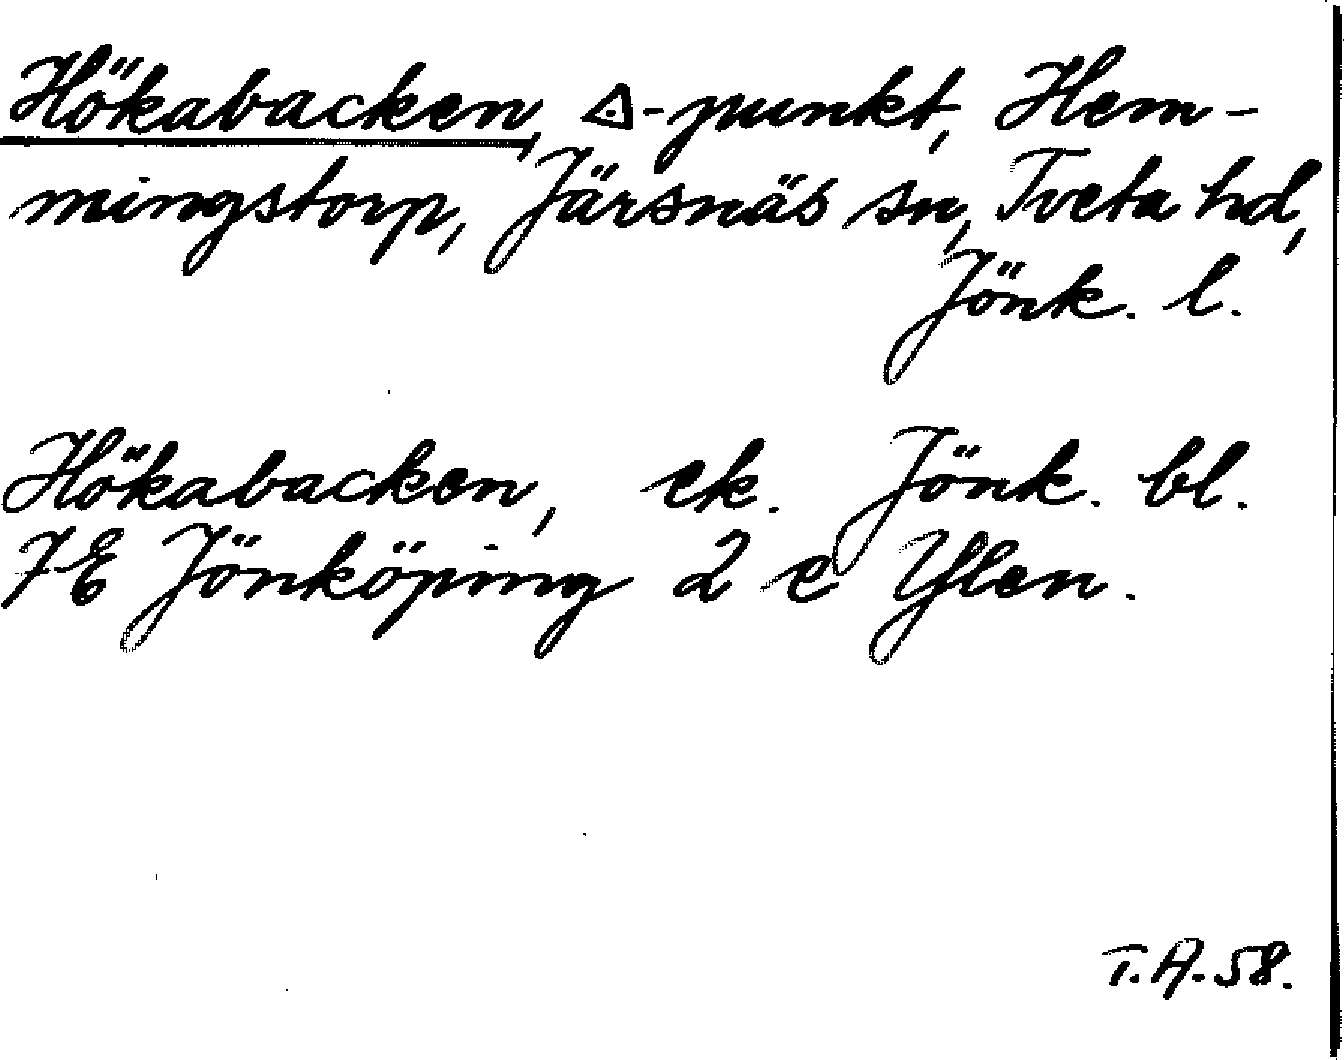 Hökabacken, ◬-punkt, Hem-
mingstorp, Järsnäs sn, Tveta hd,
Jönk. l.
Hökabacken, ek. Jönk. bl.
7E Jönköping 2 e Ylen.
T.A. 58.